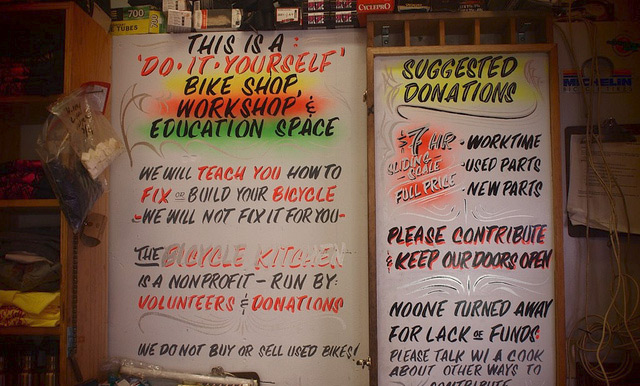 700
TUBES
CYCLEPRO
MICHELIN
THIS IS A:
'DO·IT·YOURSELF'
BIKE SHOP,
WORKSHOP, &
EDUCATION SPACE
WE WILL TEACH YOU HOW TO
FIX OR BUILD YOUR BICYCLE
-WE WILL NOT FIX IT FOR YOU-
THE BICYCLE KITCHEN
IS A NONPROFIT - RUN BY:
VOLUNTEERS & DONATIONS
WE DO NOT BUY OR SELL USED BIKES!
SUGGESTED
DONATIONS
$7 HR · WORKTIME
SLIDING SCALE · USED PARTS
FULL PRICE · NEW PARTS
PLEASE CONTRIBUTE
& KEEP OUR DOORS OPEN
NOONE TURNED AWAY
FOR LACK OF FUNDS.
PLEASE TALK W/ A COOK
ABOUT OTHER WAYS TO
CONTRIBUTE